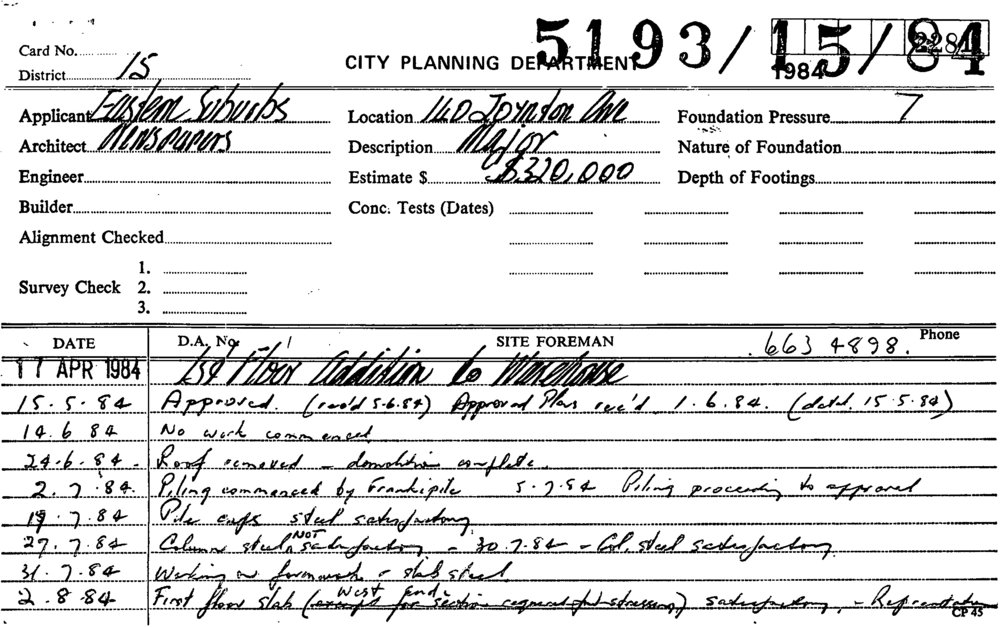 5193/15/84
Card No. 2284
District 15 CITY PLANNING DEPARTMENT 1984
Applicant Eastern Suburbs Location 140 Joynton Ave Foundation Pressure 7
Architect Newspapers Description Major Nature of Foundation
Engineer Estimate $ $320,000 Depth of Footings
Builder Conc. Tests (Dates)
Alignment Checked
1.
Survey Check 2.
3.
DATE D.A. No. SITE FOREMAN 663 4898. Phone
17 APR 1984 1st Floor Addition to Warehouse
15.5.84 Approved. (rec'd 5.6.84) Approved Plans rec'd 1.6.84. (datd. 15.5.84)
14.6 84 No work commenced
24.6.84. Roof removed - demolition complete.
2.7.84. Piling commenced by Frankipile 5.7.84 Piling proceeding to approval
19.7.84 Pile caps steel satisfactory
27.7.84 Column steel NOT satisfactory - 30.7.84 - Col. steel satisfactory.
31.7.84 Working on formwork & slab steel
2.8 84 First floor slab (except for West End section required post stressing) satisfactory, -
CP 45